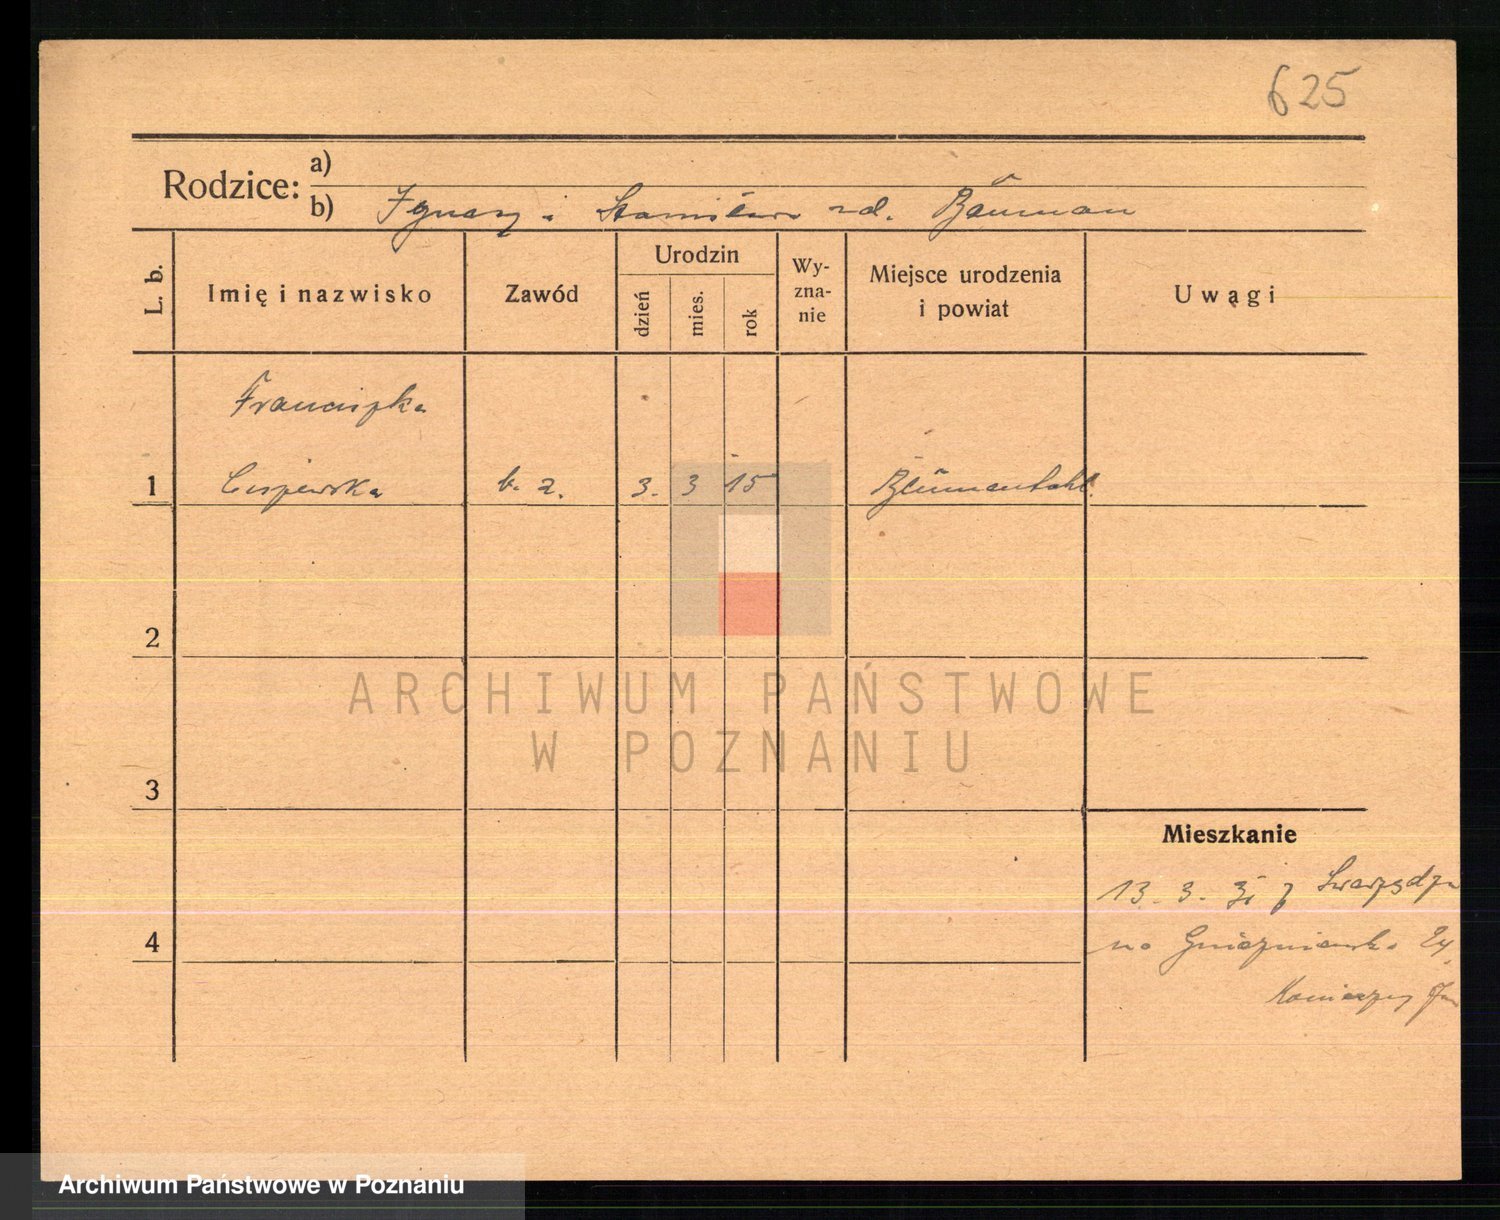 625
Rodzice:
a)
b) Ignacy i Stanisława zd. Bauman
L. b.
Imię i nazwisko
Zawód
Urodzin
dzień
mies.
rok
Wy-
zna-
nie
Miejsce urodzenia
i powiat
Uwagi
Franciszka
1 Ciszewska b. z. 3. 3 15 Blümentahl.
2
3
4
Mieszkanie
13. 3. 31 z Swarzędza
na Gnieźnieńska 24.
ARCHIWUM PAŃSTWOWE
W POZNANIU
Archiwum Państwowe w Poznaniu